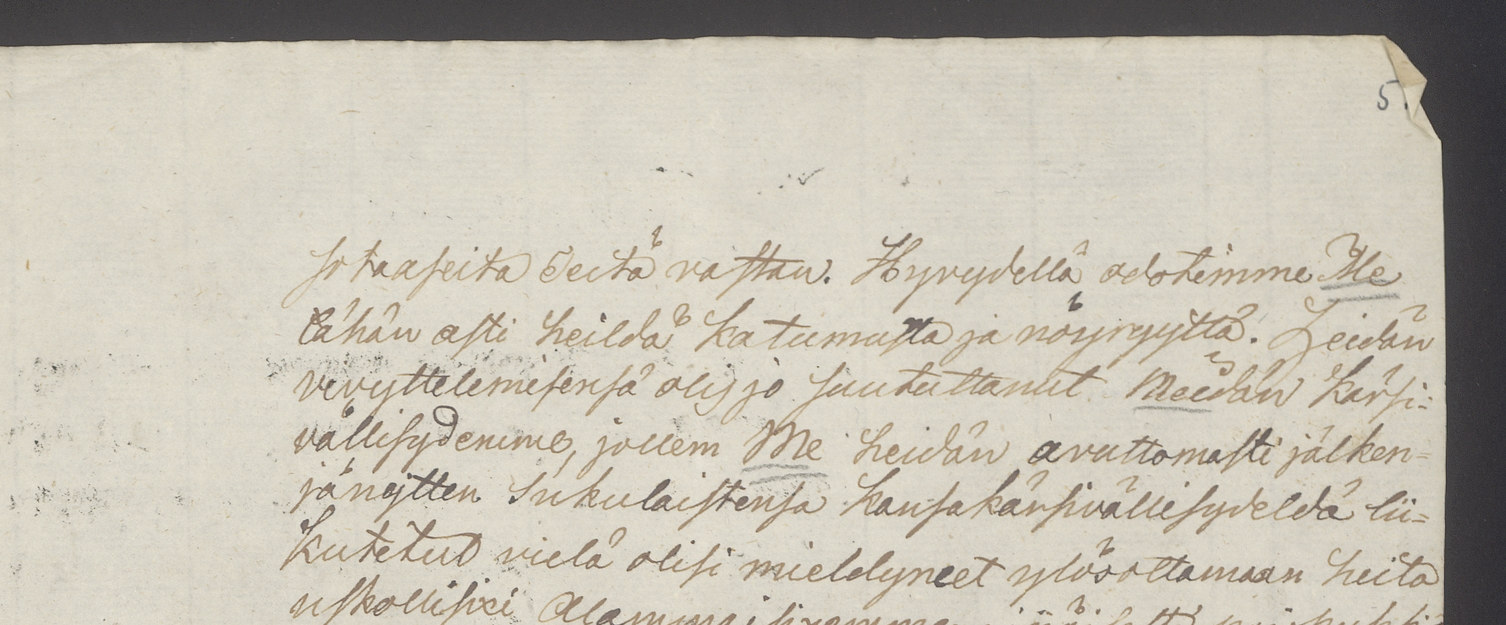 5.
sotaaseita Teitä vastan. Hyvydellä odotimme Me
tähän asti heildä katumusta ja nöyryyttä. Heidän
vivyttelemisensä olis jo suututtanut Meidän kärsi=
vällisydemme, jollem Me heidän avuttomasti jälken=
jänejtten sukulaistensa kansakärsivällisydeldä lii=
kutetut vielä olisi mieldyneet ylösottamaan heitä
uskollisixi Alammaisixemme